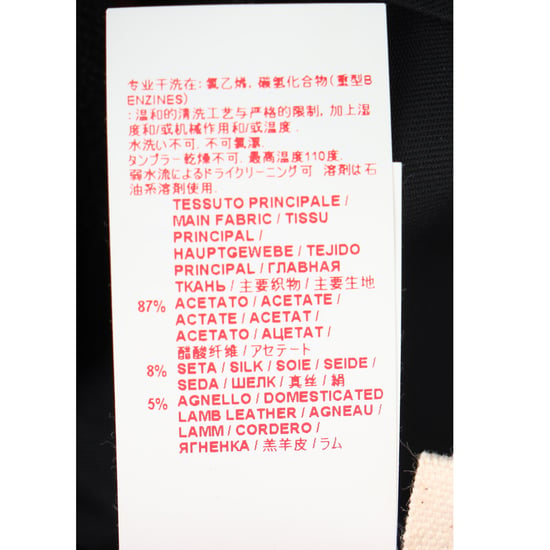 专业干洗在: 氯乙烯, 碳氢化合物(重型B
ENZINES)
: 温和的清洗工艺与严格的限制, 加上湿
度和/或机械作用和/或温度 .
水洗い不可, 不可氯漂.
タンブラー乾燥不可. 最高温度110度.
弱水流によるドライクリーニング可 溶剤は石
油系溶剤使用.
TESSUTO PRINCIPALE /
MAIN FABRIC / TISSU
PRINCIPAL /
HAUPTGEWEBE / TEJIDO
PRINCIPAL / ГЛАВНАЯ
ТКАНЬ / 主要织物 / 主要生地
87% ACETATO / ACETATE /
ACTATE / ACETAT /
ACETATO / АЦЕТАТ /
醋酸纤维 / アセテート
8% SETA / SILK / SOIE / SEIDE /
SEDA / ШЕЛК / 真丝 / 絹
5% AGNELLO / DOMESTICATED
LAMB LEATHER / AGNEAU /
LAMM / CORDERO /
ЯГНЕНКА / 羔羊皮 / ラム